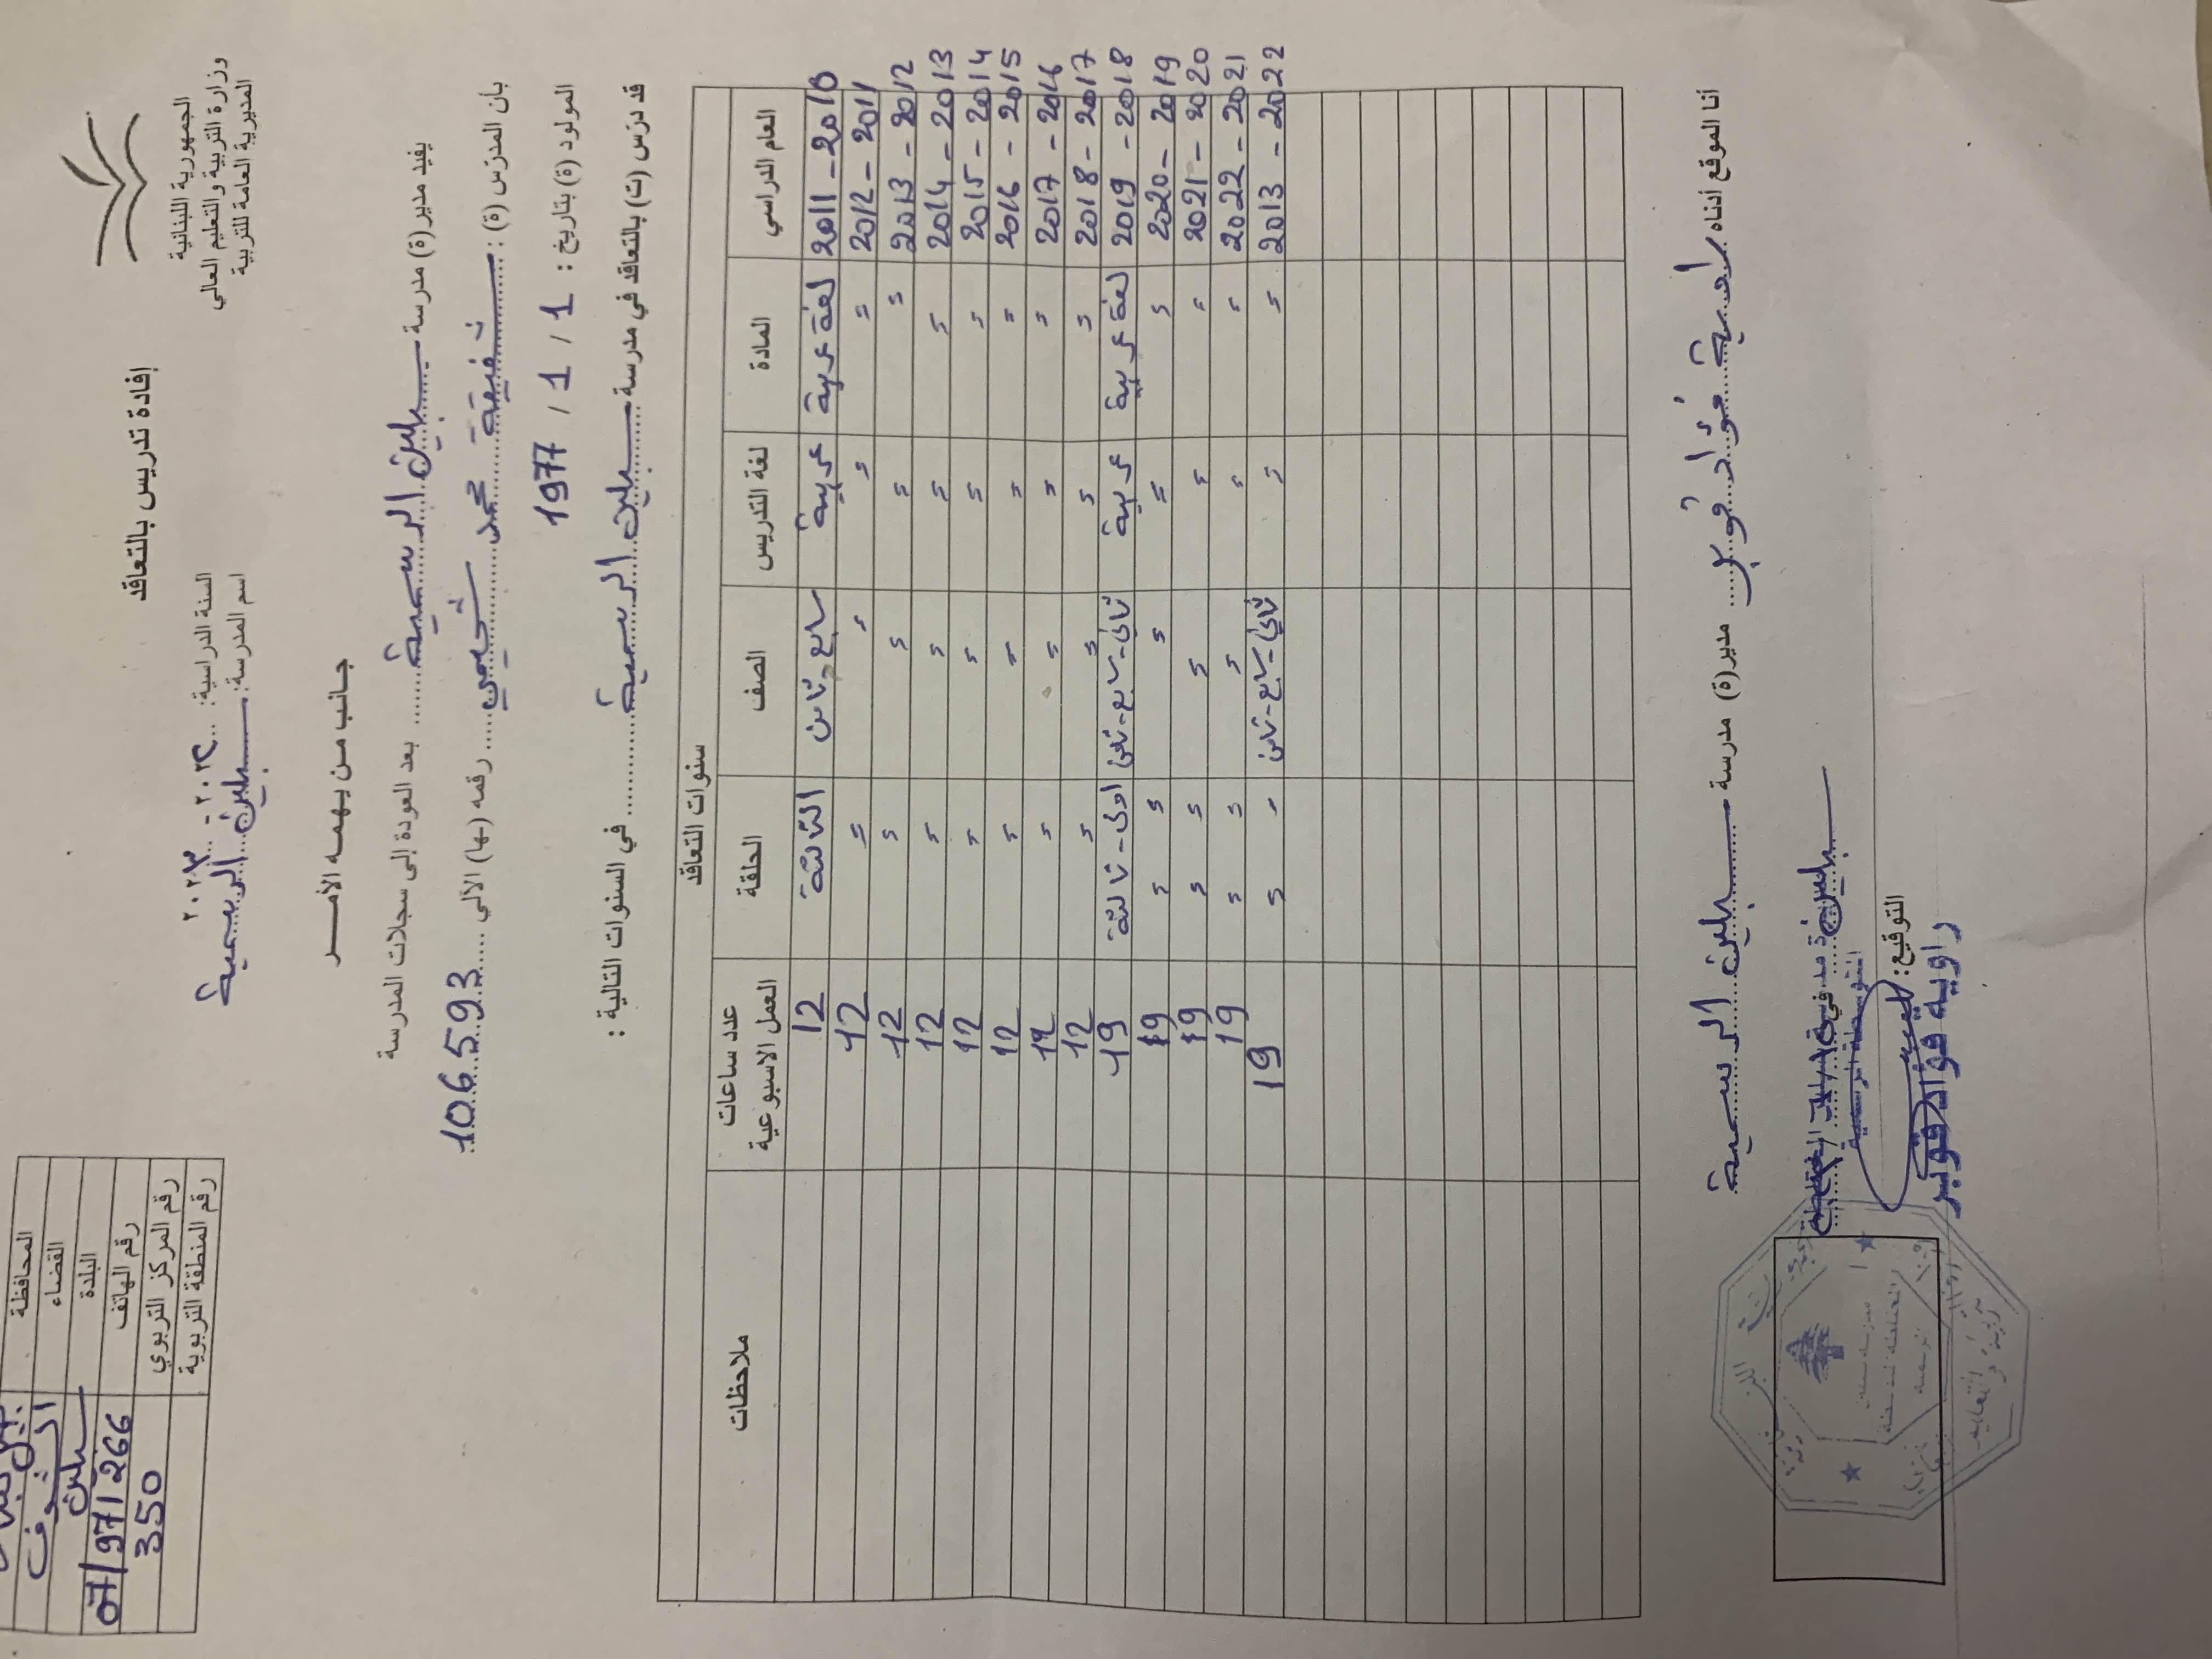 الجمهورية اللبنانية
وزارة التربية والتعليم العالي
المديرية العامة للتربية
المحافظة
القضاء الشوف
البلدة
رقم الهاتف 07/971266
رقم المركز التربوي 350
رقم المنطقة التربوية
إفادة تدريس بالتعاقد
السنة الدراسية: ٢٠٢٢ - ٢٠٢٣
اسم المدرسة: الرسمية
جانب من يهمه الأمر
يفيد مدير(ة) مدرسة الرسمية بعد العودة إلى سجلات المدرسة
بان المدرّس (ة): محمد رقمه (ها) الآلي 106593
المولود (ة) بتاريخ: 1 / 1 / 1977
قد درّس (ت) بالتعاقد في مدرسة الرسمية في السنوات التالية:
سنوات التعاقد
العام الدراسي المادة لغة التدريس الصف الحلقة عدد ساعات العمل الاسبوعية ملاحظات
2011 - 2010 لغة عربية عربية سابع - ثامن الثالثة 12
2012 - 2011 = = = = 12
2013 - 2012 = = = = 12
2014 - 2013 = = = = 12
2015 - 2014 = = = = 12
2016 - 2015 = = = = 12
2017 - 2016 = = = = 12
2018 - 2017 = = = = 12
2019 - 2018 لغة عربية عربية ثاني - سابع - ثامن اولى - ثالثة 19
2020 - 2019 = = = = = 19
2021 - 2020 = = = = = 19
2022 - 2021 = = = = = 19
2013 - 2022 = = ثاني - سابع - ثامن = = 19
أنا الموقع أدناه فؤاد مدير(ة) مدرسة الرسمية
التوقيع:
فؤاد